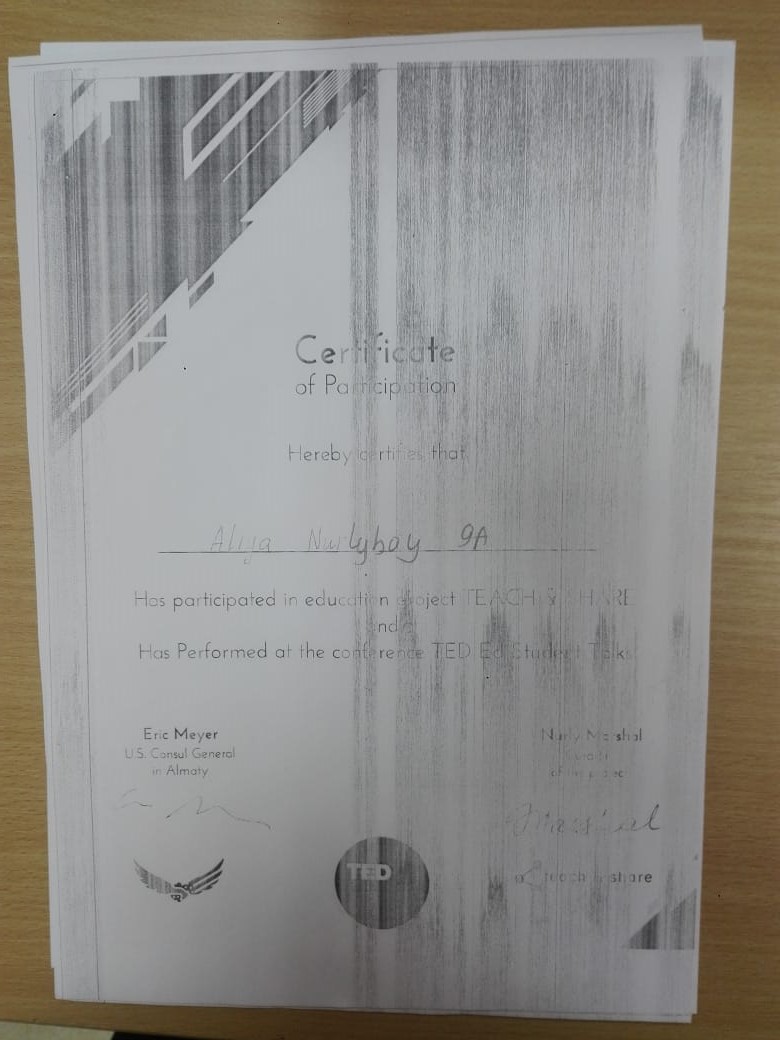 Certificate
of Participation
Hereby certifies that
Aliya Nurlybay 9A
Has participated in education project TEACH & SHARE
and
Has Performed at the conference TED Ed Student Talks
Eric Meyer
U.S. Consul General
in Almaty
Nurly Marshal
of the project
Marshal
TED
teach & share